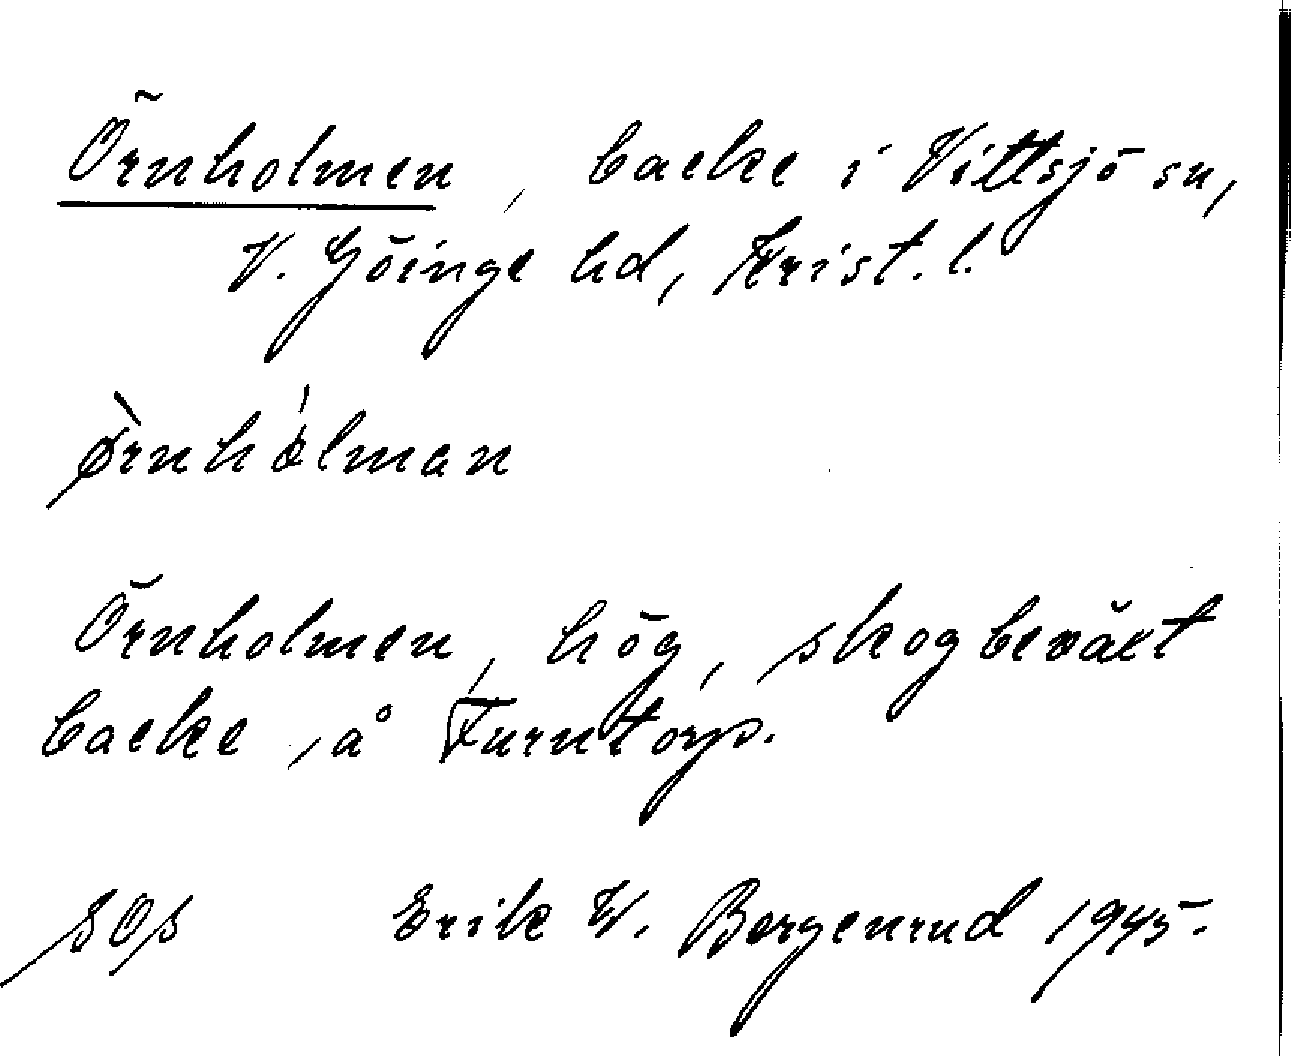 Örnholmen, backe i Vittsjö sn,
V. Göinge hd, Krist. l.
Ørnhólman
Örnholmen, hög, skogbeväxt
backe, å Furutorp.
SOS Erik W. Bergenrud 1945.